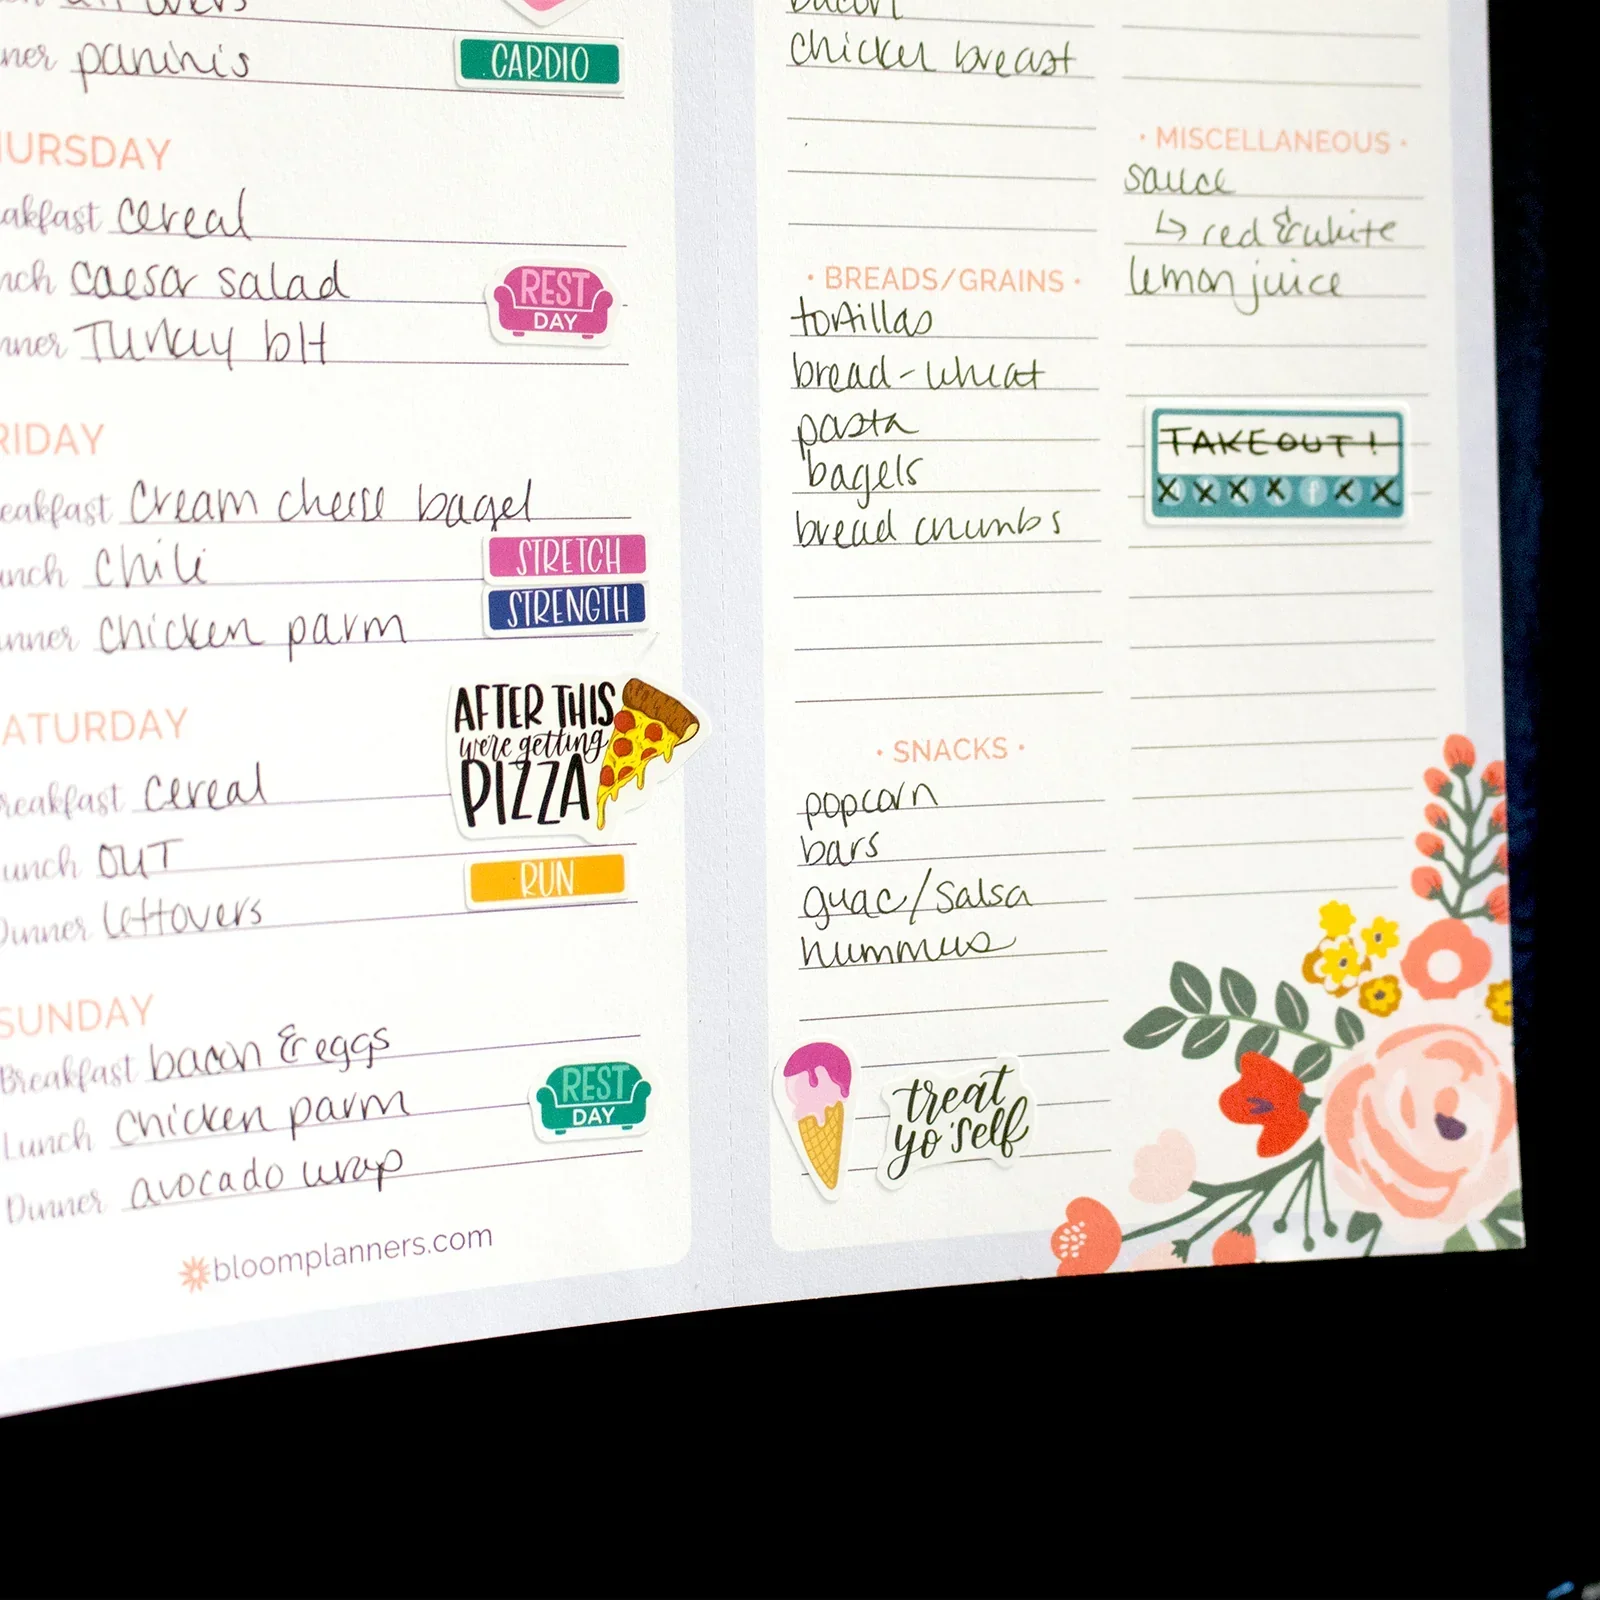 ner paninis
CARDIO
URSDAY
akfast cereal
nch caesar salad
REST
DAY
nner Turkey blt
RIDAY
eakfast cream cheese bagel
unch chili
STRETCH
STRENGTH
inner chicken parm
ATURDAY
AFTER THIS
we're getting
PIZZA
reakfast cereal
unch OUT
RUN
Dinner leftovers
SUNDAY
Breakfast bacon & eggs
Lunch chicken parm
REST
DAY
Dinner avocado wrap
bloomplanners.com
bacon
chicken breast
· BREADS/GRAINS ·
tortillas
bread - wheat
pasta
bagels
bread crumbs
· SNACKS ·
popcorn
bars
guac/salsa
hummus
treat
yo'self
· MISCELLANEOUS ·
sauce
↳ red & white
lemon juice
TAKEOUT!
X X X X f X X